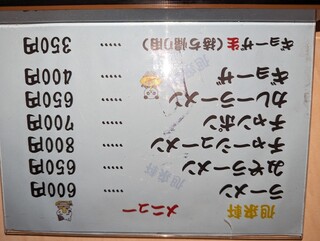 旭来軒 メニュー
ラーメン ‥‥‥ 600円
みそラーメン ‥‥‥ 650円
チャーシューメン ‥‥‥ 800円
チャンポン ‥‥‥ 700円
カレーラーメン ‥‥‥ 650円
ギョーザ ‥‥‥ 400円
ギョーザ生(持ち帰り用) ‥‥‥ 350円
旭来軒
旭来軒